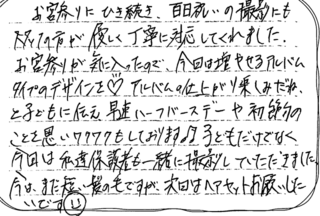 お宮参りにひき続き、百日祝いの撮影にも
スタッフの方が優しく丁寧に対応してくれました。
お宮参りが気に入ったので、今回は増やせるアルバム
タイプのデザインを♡アルバムの仕上がり楽しみだね、
と子どもに伝え早速ハーフバースデーや初節句の
ことを思いワクワクもしております♪子どもだけでなく
今回は私達保護者も一緒に撮影していただきました。
今は、まだ短い髪の毛ですが、次回はヘアセットお願いした
いです